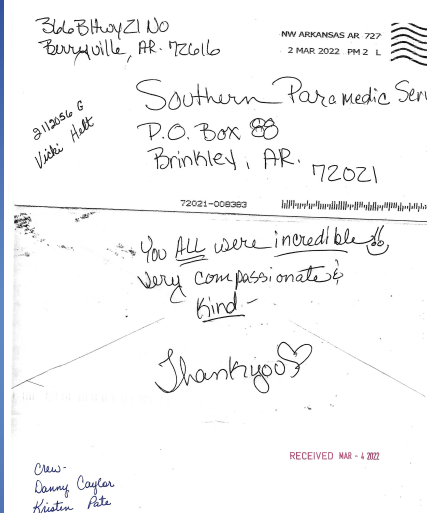 366 B Hwy 21 NO
Berryville, AR. 72616
NW ARKANSAS AR 727
2 MAR 2022 PM 2 L
2112056 G
Vicki Helt
Southern Paramedic Serv
P.O. Box 88
Brinkley, AR.
72021
72021-008383
You ALL were incredible
very compassionate &
Kind -
Thankyou
RECEIVED MAR - 4 2022
Crew-
Danny Caylor
Kristen Pate